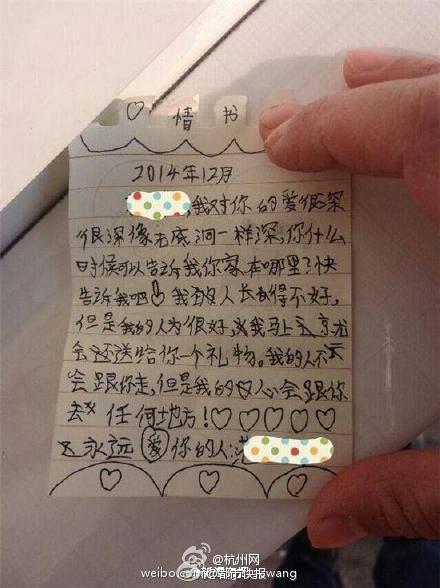 ♡情书
2014年12月
我对你的爱很深
很深像无底洞一样深,你什么
时候可以告诉我你家在哪里?快
告诉我吧!我人长得不好,
但是我的人为很好,我马上
会还送给你一个礼物。我的人不
会跟你走,但是我的心会跟你
去任何地方!♡♡♡♡♡
永远爱你的人:范
@杭州网